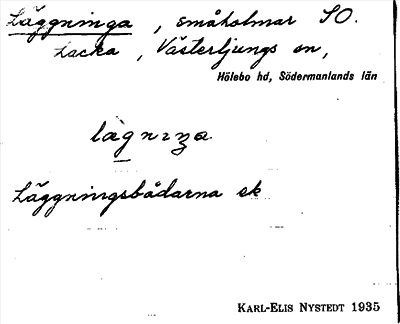 Läggninga, småholmar SO.
Lacka, Västerljungs sn,
Hölebo hd, Södermanlands län
lægnıŋa
Läggningsbådarna ek
KARL-ELIS NYSTEDT 1935